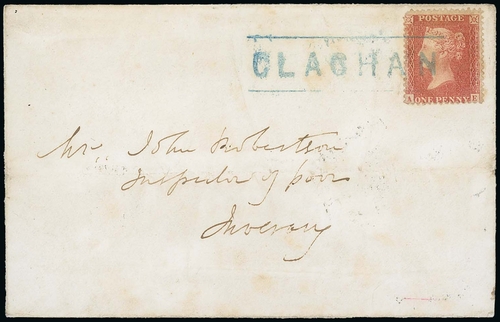 POSTAGE
CLACHAN
ONE PENNY
Mr. John Robertson
Inspector of poor
Inverary